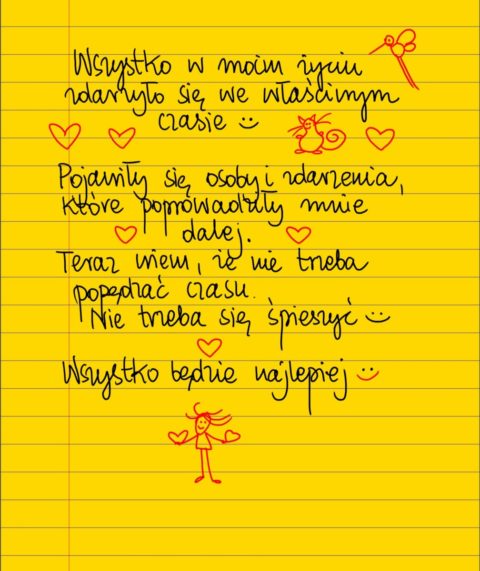 Wszystko w moim życiu
zdarzyło się we właściwym
czasie :)
Pojawiły się osoby i zdarzenia,
które poprowadziły mnie
dalej.
Teraz wiem, że nie trzeba
popędzać czasu.
Nie trzeba się śpieszyć :)
Wszystko będzie najlepiej :)